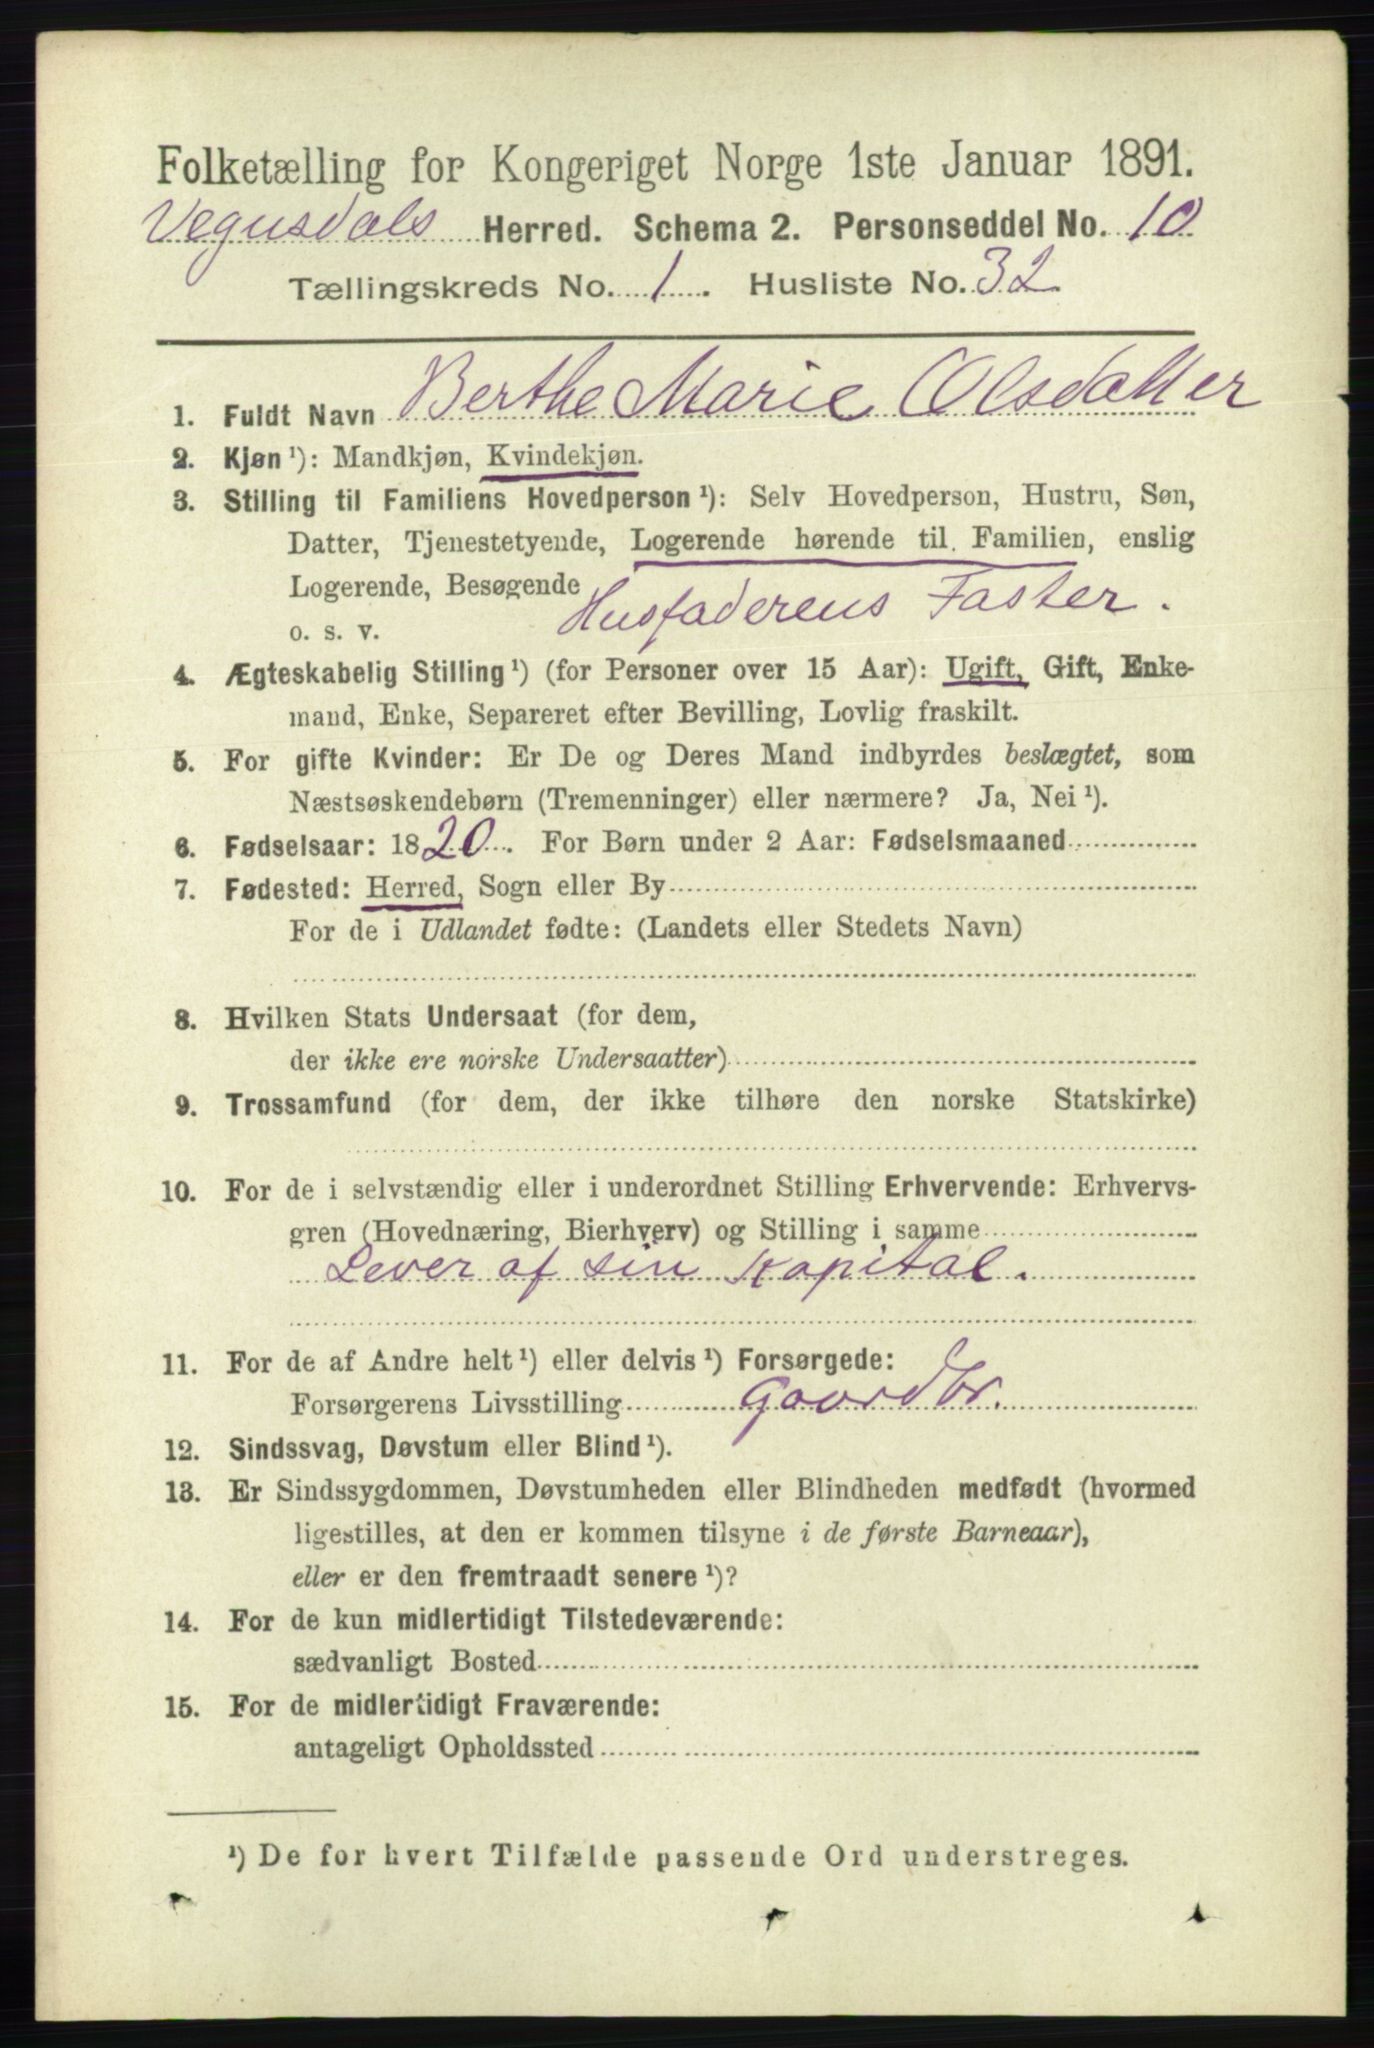 Folketælling for Kongeriget Norge 1ste Januar 1891.
Vegusdals Herred. Schema 2. Personseddel No. 10
Tællingskreds No. 1. Husliste No. 32
1. Fuldt Navn Berthe Marie Olsdatter
2. Kjøn ¹): Mandkjøn, Kvindekjøn.
3. Stilling til Familiens Hovedperson ¹): Selv Hovedperson, Hustru, Søn,
Datter, Tjenestetyende, Logerende hørende til Familien, enslig
Logerende, Besøgende
o. s. v. Husfaderens Faster.
4. Ægteskabelig Stilling ¹) (for Personer over 15 Aar): Ugift, Gift, Enke-
mand, Enke, Separeret efter Bevilling, Lovlig fraskilt.
5. For gifte Kvinder: Er De og Deres Mand indbyrdes beslægtet, som
Næstsøskendebørn (Tremenninger) eller nærmere? Ja, Nei ¹).
6. Fødselsaar: 1820. For Børn under 2 Aar: Fødselsmaaned
7. Fødested: Herred, Sogn eller By
For de i Udlandet fødte: (Landets eller Stedets Navn)
8. Hvilken Stats Undersaat (for dem,
der ikke ere norske Undersaatter)
9. Trossamfund (for dem, der ikke tilhøre den norske Statskirke)
10. For de i selvstændig eller i underordnet Stilling Erhvervende: Erhvervs-
gren (Hovednæring, Bierhverv) og Stilling i samme
Lever af sin Kapital.
11. For de af Andre helt ¹) eller delvis ¹) Forsørgede:
Forsørgerens Livsstilling Gaardbr.
12. Sindssvag, Døvstum eller Blind ¹).
13. Er Sindssygdommen, Døvstumheden eller Blindheden medfødt (hvormed
ligestilles, at den er kommen tilsyne i de første Barneaar),
eller er den fremtraadt senere ¹)?
14. For de kun midlertidigt Tilstedeværende:
sædvanligt Bosted
15. For de midlertidigt Fraværende:
antageligt Opholdssted
¹) De for hvert Tilfælde passende Ord understreges.